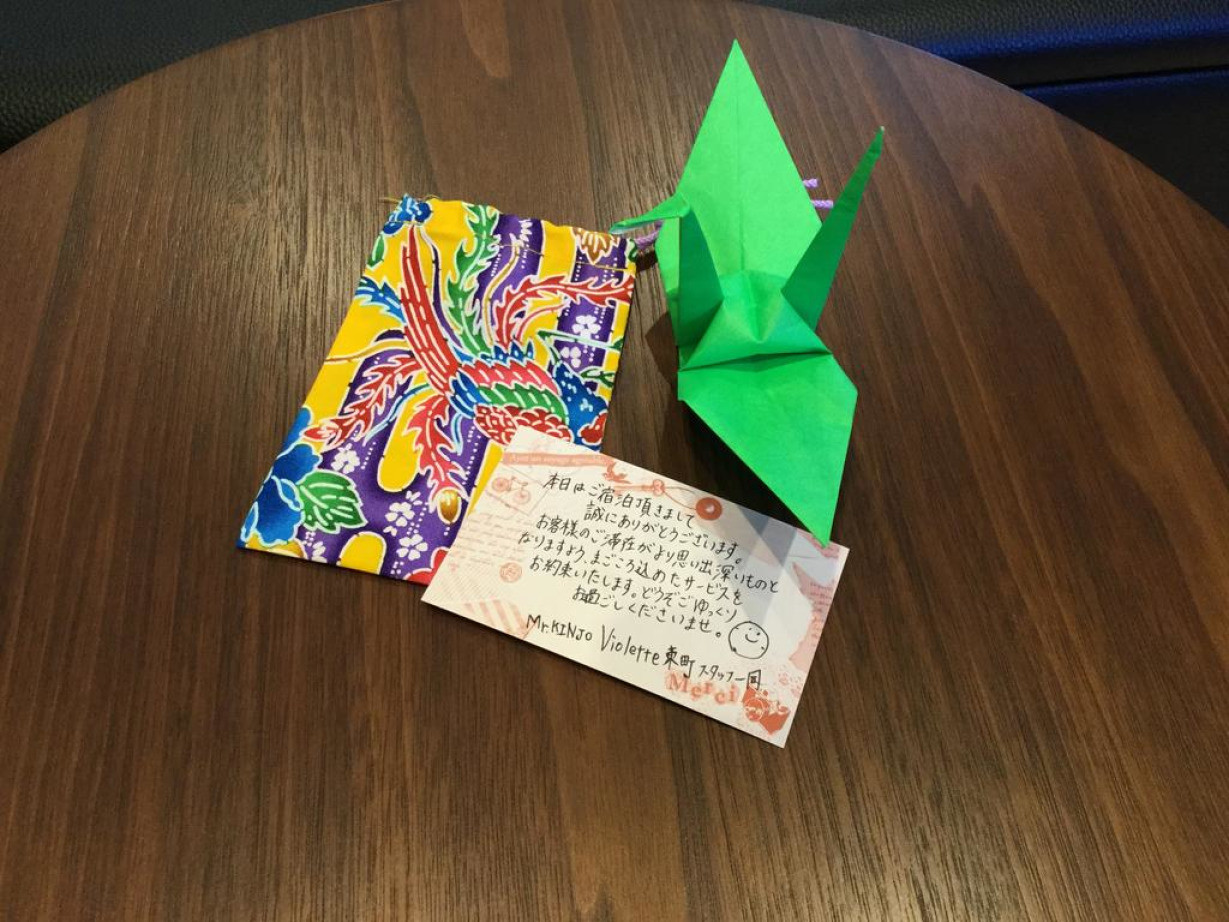 本日はご宿泊頂きまして
誠にありがとうございます。
お客様のご滞在がより思い出深いものと
なりますよう、まごころ込めたサービスを
お約束いたします。どうぞごゆっくり
お過ごしくださいませ。
Mr.KINJO Violette 東町 スタッフ一同
Merci